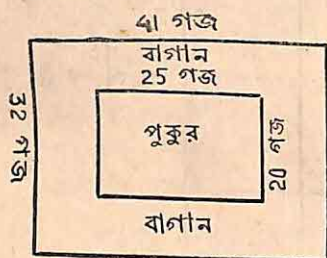 41 গজ
বাগান
25 গজ
32 গজ
পুকুর
20 গজ
বাগান